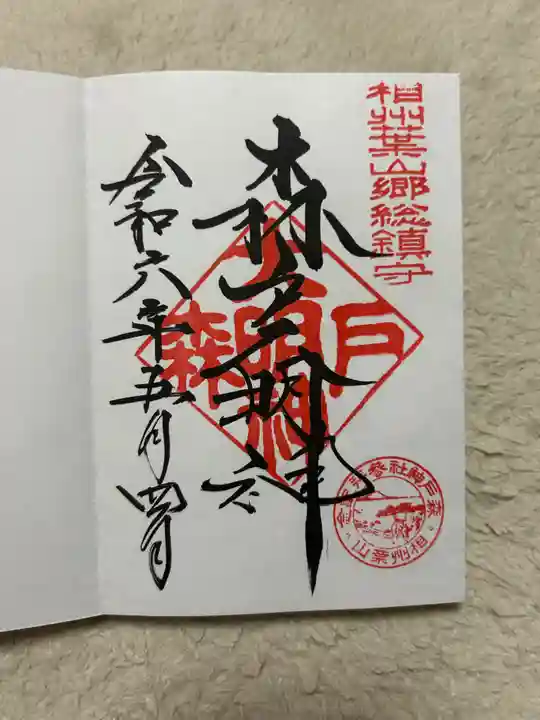 相州葉山郷総鎮守
森戸大明神
森戸大明神
令和六年五月四日
森戸神社参拝記念
相州葉山